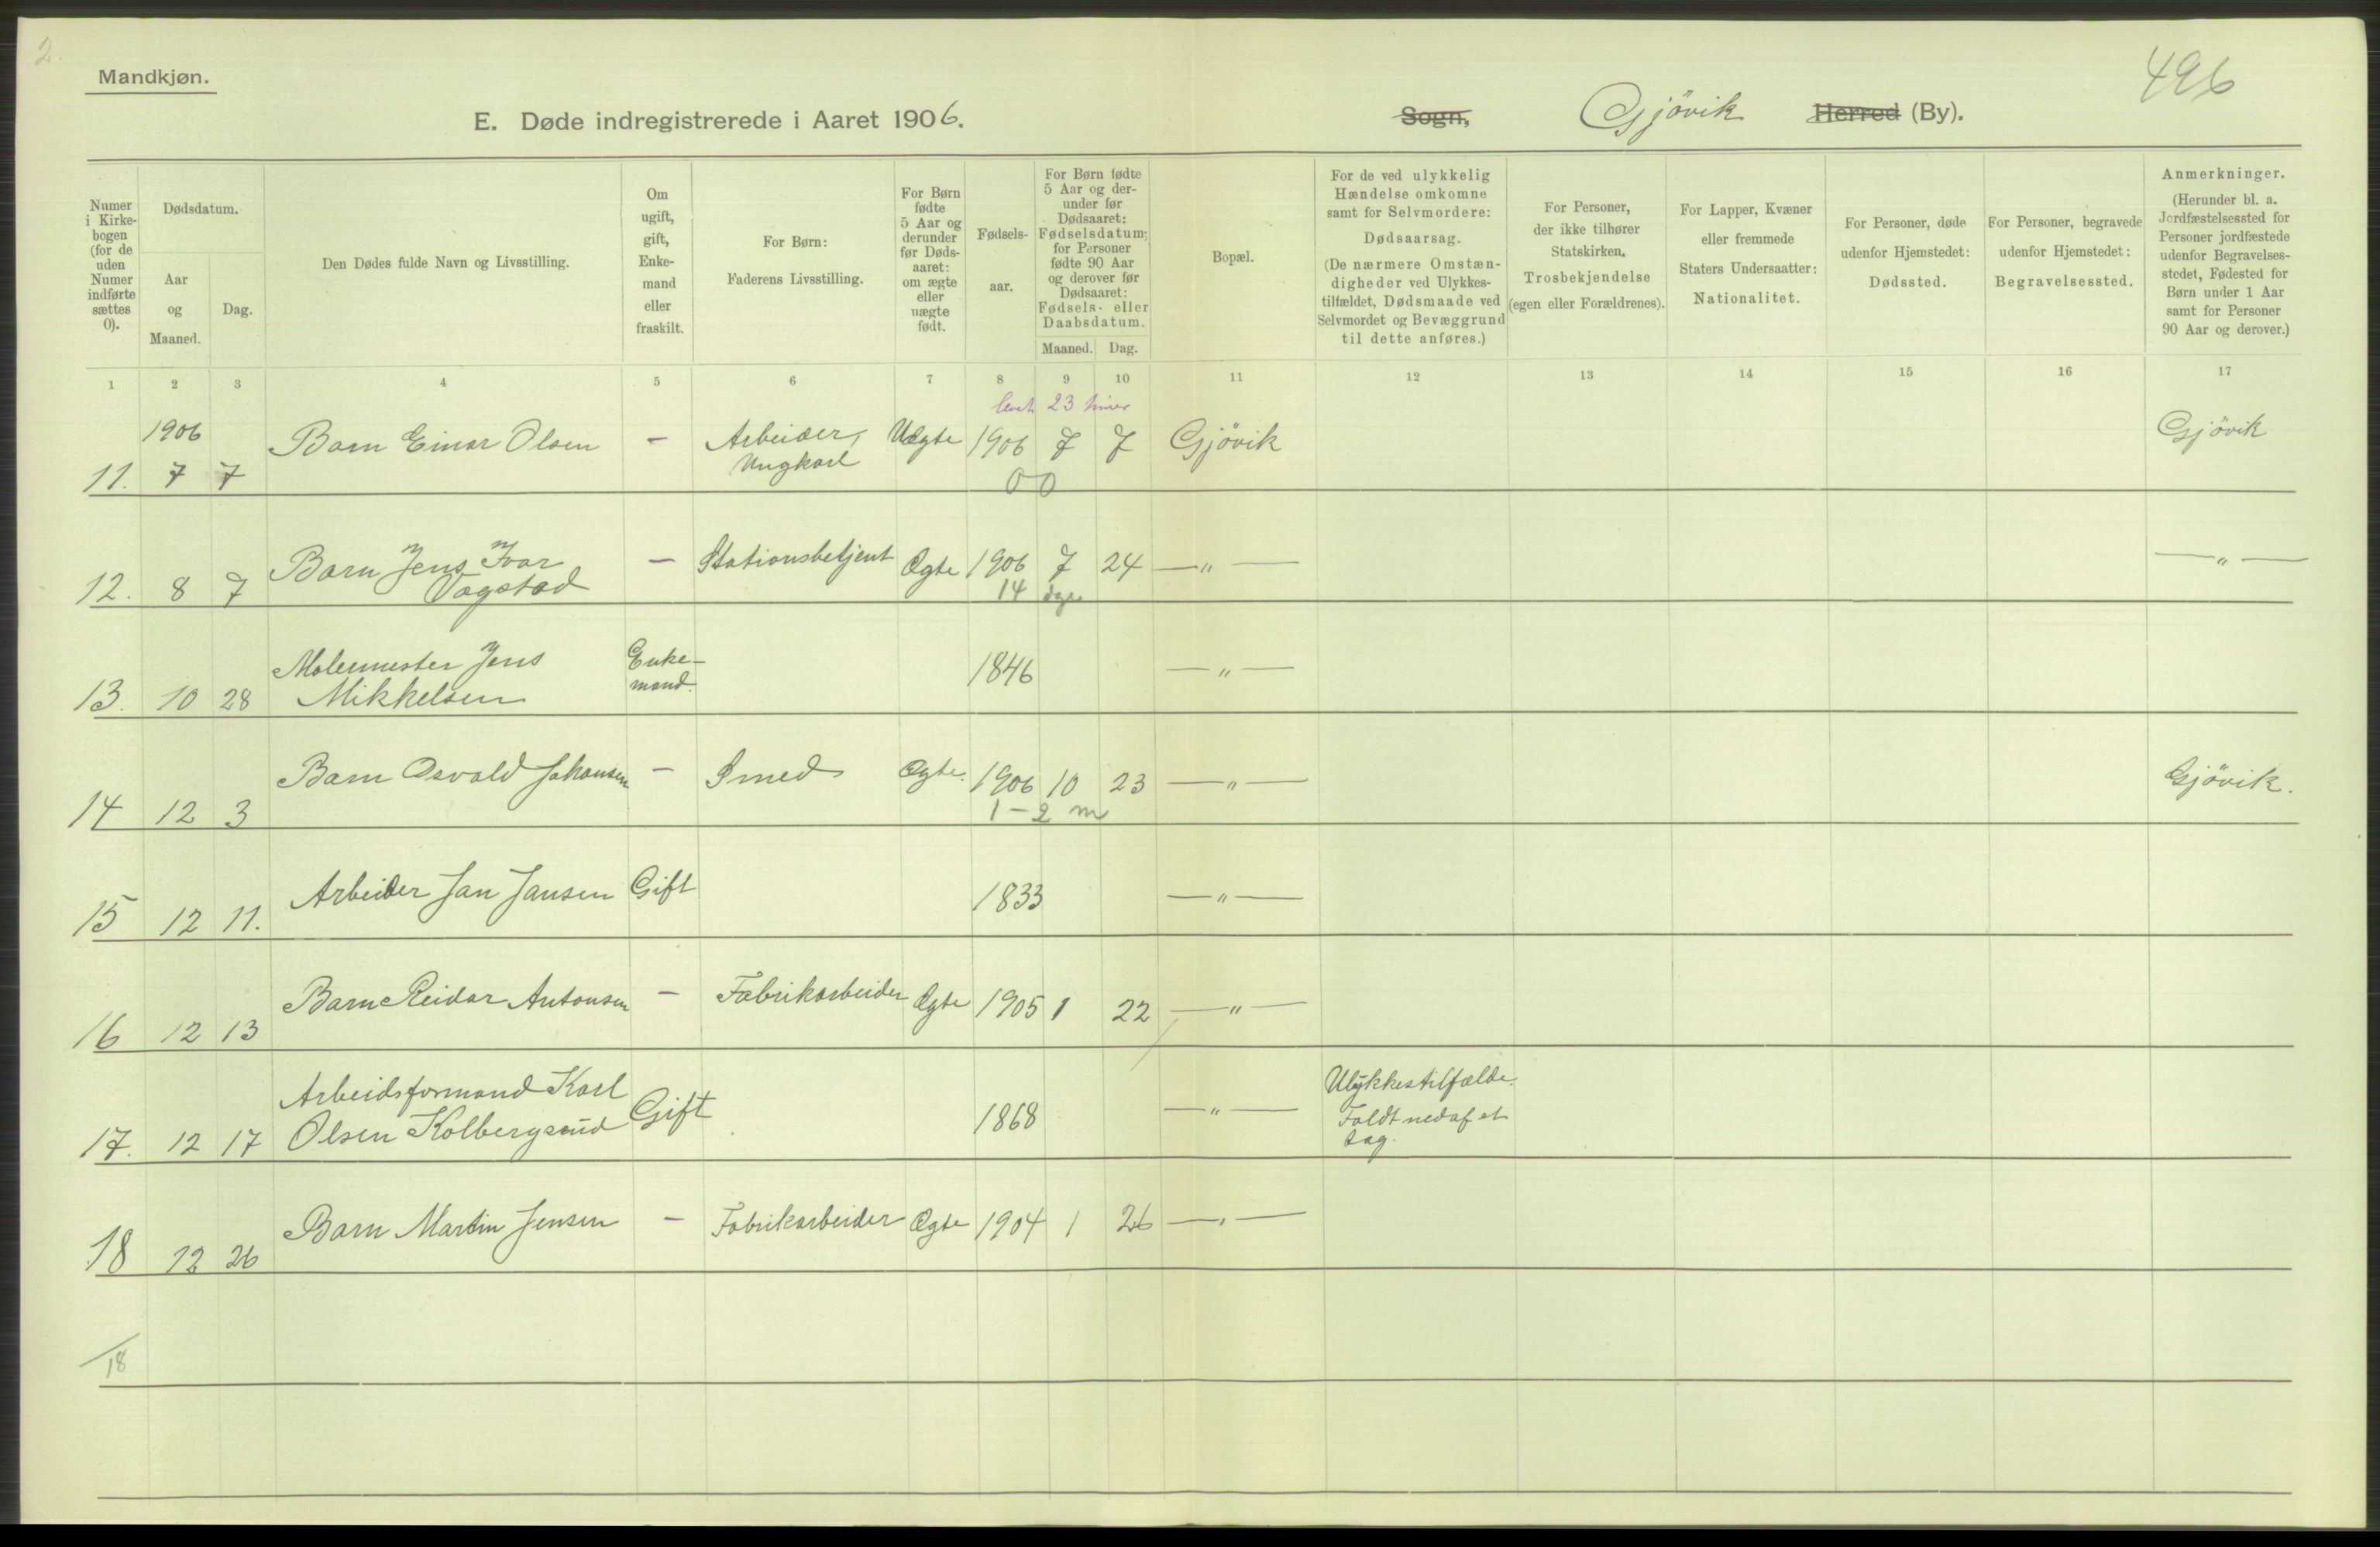 2.
Mandkjøn.
496
E. Døde indregistrerede i Aaret 1906.
Sogn, Gjövik Herred (By).
Numer i Kirkebogen (for de uden Numer indførte sættes 0).
Dødsdatum.
Aar og Maaned.
Dag.
Den Dødes fulde Navn og Livsstilling.
Om ugift, gift, Enkemand eller fraskilt.
For Børn: Faderens Livsstilling.
For Børn fødte 5 Aar og derunder før Dødsaaret: om ægte eller uægte født.
Fødselsaar.
For Børn fødte 5 Aar og derunder før Dødsaaret: Fødselsdatum; for Personer fødte 90 Aar og derover før Dødsaaret: Fødsels- eller Daabsdatum.
Maaned. Dag.
Bopæl.
For de ved ulykkelig Hændelse omkomne samt for Selvmordere: Dødsaarsag. (De nærmere Omstændigheder ved Ulykkestilfældet, Dødsmaade ved Selvmordet og Bevæggrund til dette anføres.)
For Personer, der ikke tilhører Statskirken, Trosbekjendelse (egen eller Forældrenes).
For Lapper, Kvæner eller fremmede Staters Undersaatter: Nationalitet.
For Personer, døde udenfor Hjemstedet: Dødssted.
For Personer, begravede udenfor Hjemstedet: Begravelsessted.
Anmerkninger. (Herunder bl. a. Jordfæstelsessted for Personer jordfæstede udenfor Begravelsesstedet, Fødested for Børn under 1 Aar samt for Personer 90 Aar og derover.)
1 2 3 4 5 6 7 8 9 10 11 12 13 14 15 16 17
levet 23 timer
1906
11. 7 7 Barn Einar Olsen — Arbeider, Ungkarl Uægte 1906 7 7 Gjövik Gjövik
0 0
12. 8 7 Barn Jens Ivar Vagstad — Stationsbetjent Ægte 1906 7 24 —"— —"—
14 dge
13. 10 28 Malermester Jens Mikkelsen Enkemand. 1846 —"—
14 12 3 Barn Osvald Johansen — Smed Ægte. 1906 10 23 —"— Gjövik.
1-2 m
15 12 11. Arbeider Jan Jansen Gift 1833 —"—
16 12 13 Barn Reidar Antonsen — Fabrikarbeider Ægte 1905 1 22 —"—
17. 12 17 Arbeidsformand Karl Olsen Kolbergsrud Gift 1868 —"— Ulykkestilfælde. Faldt ned af et tag.
18 12 26 Barn Martin Jensen — Fabrikarbeider Ægte 1904 1 26 —"—
18